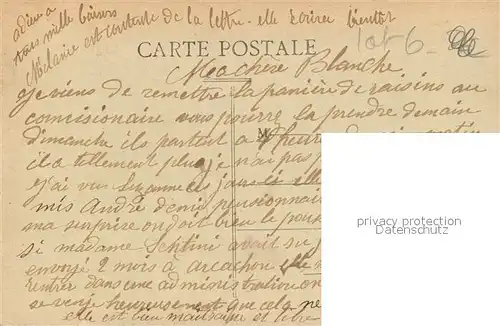 adieu a
tous mille baisers
Mélanie est contente de la lettre - elle ecrira bientot
CARTE POSTALE
lot 6
Ma chère Blanche
Je viens de remettre la panière de raisins au
comisionaire vous pourre la prendre demain
dimanche ils partent a heures
il a tellement plu je n'ai pas
j'ai vu Suzanne ces jours ci elle
mis André demi pensionnaire
ma surprise on doit bien le pous
si madame Sentini avait su
envoyé 2 mois à arcachon elle
rentrer dans une administration on
se venge heureusement que cela ne
elle est bien mauvaise et
privacy protection
Datenschutz